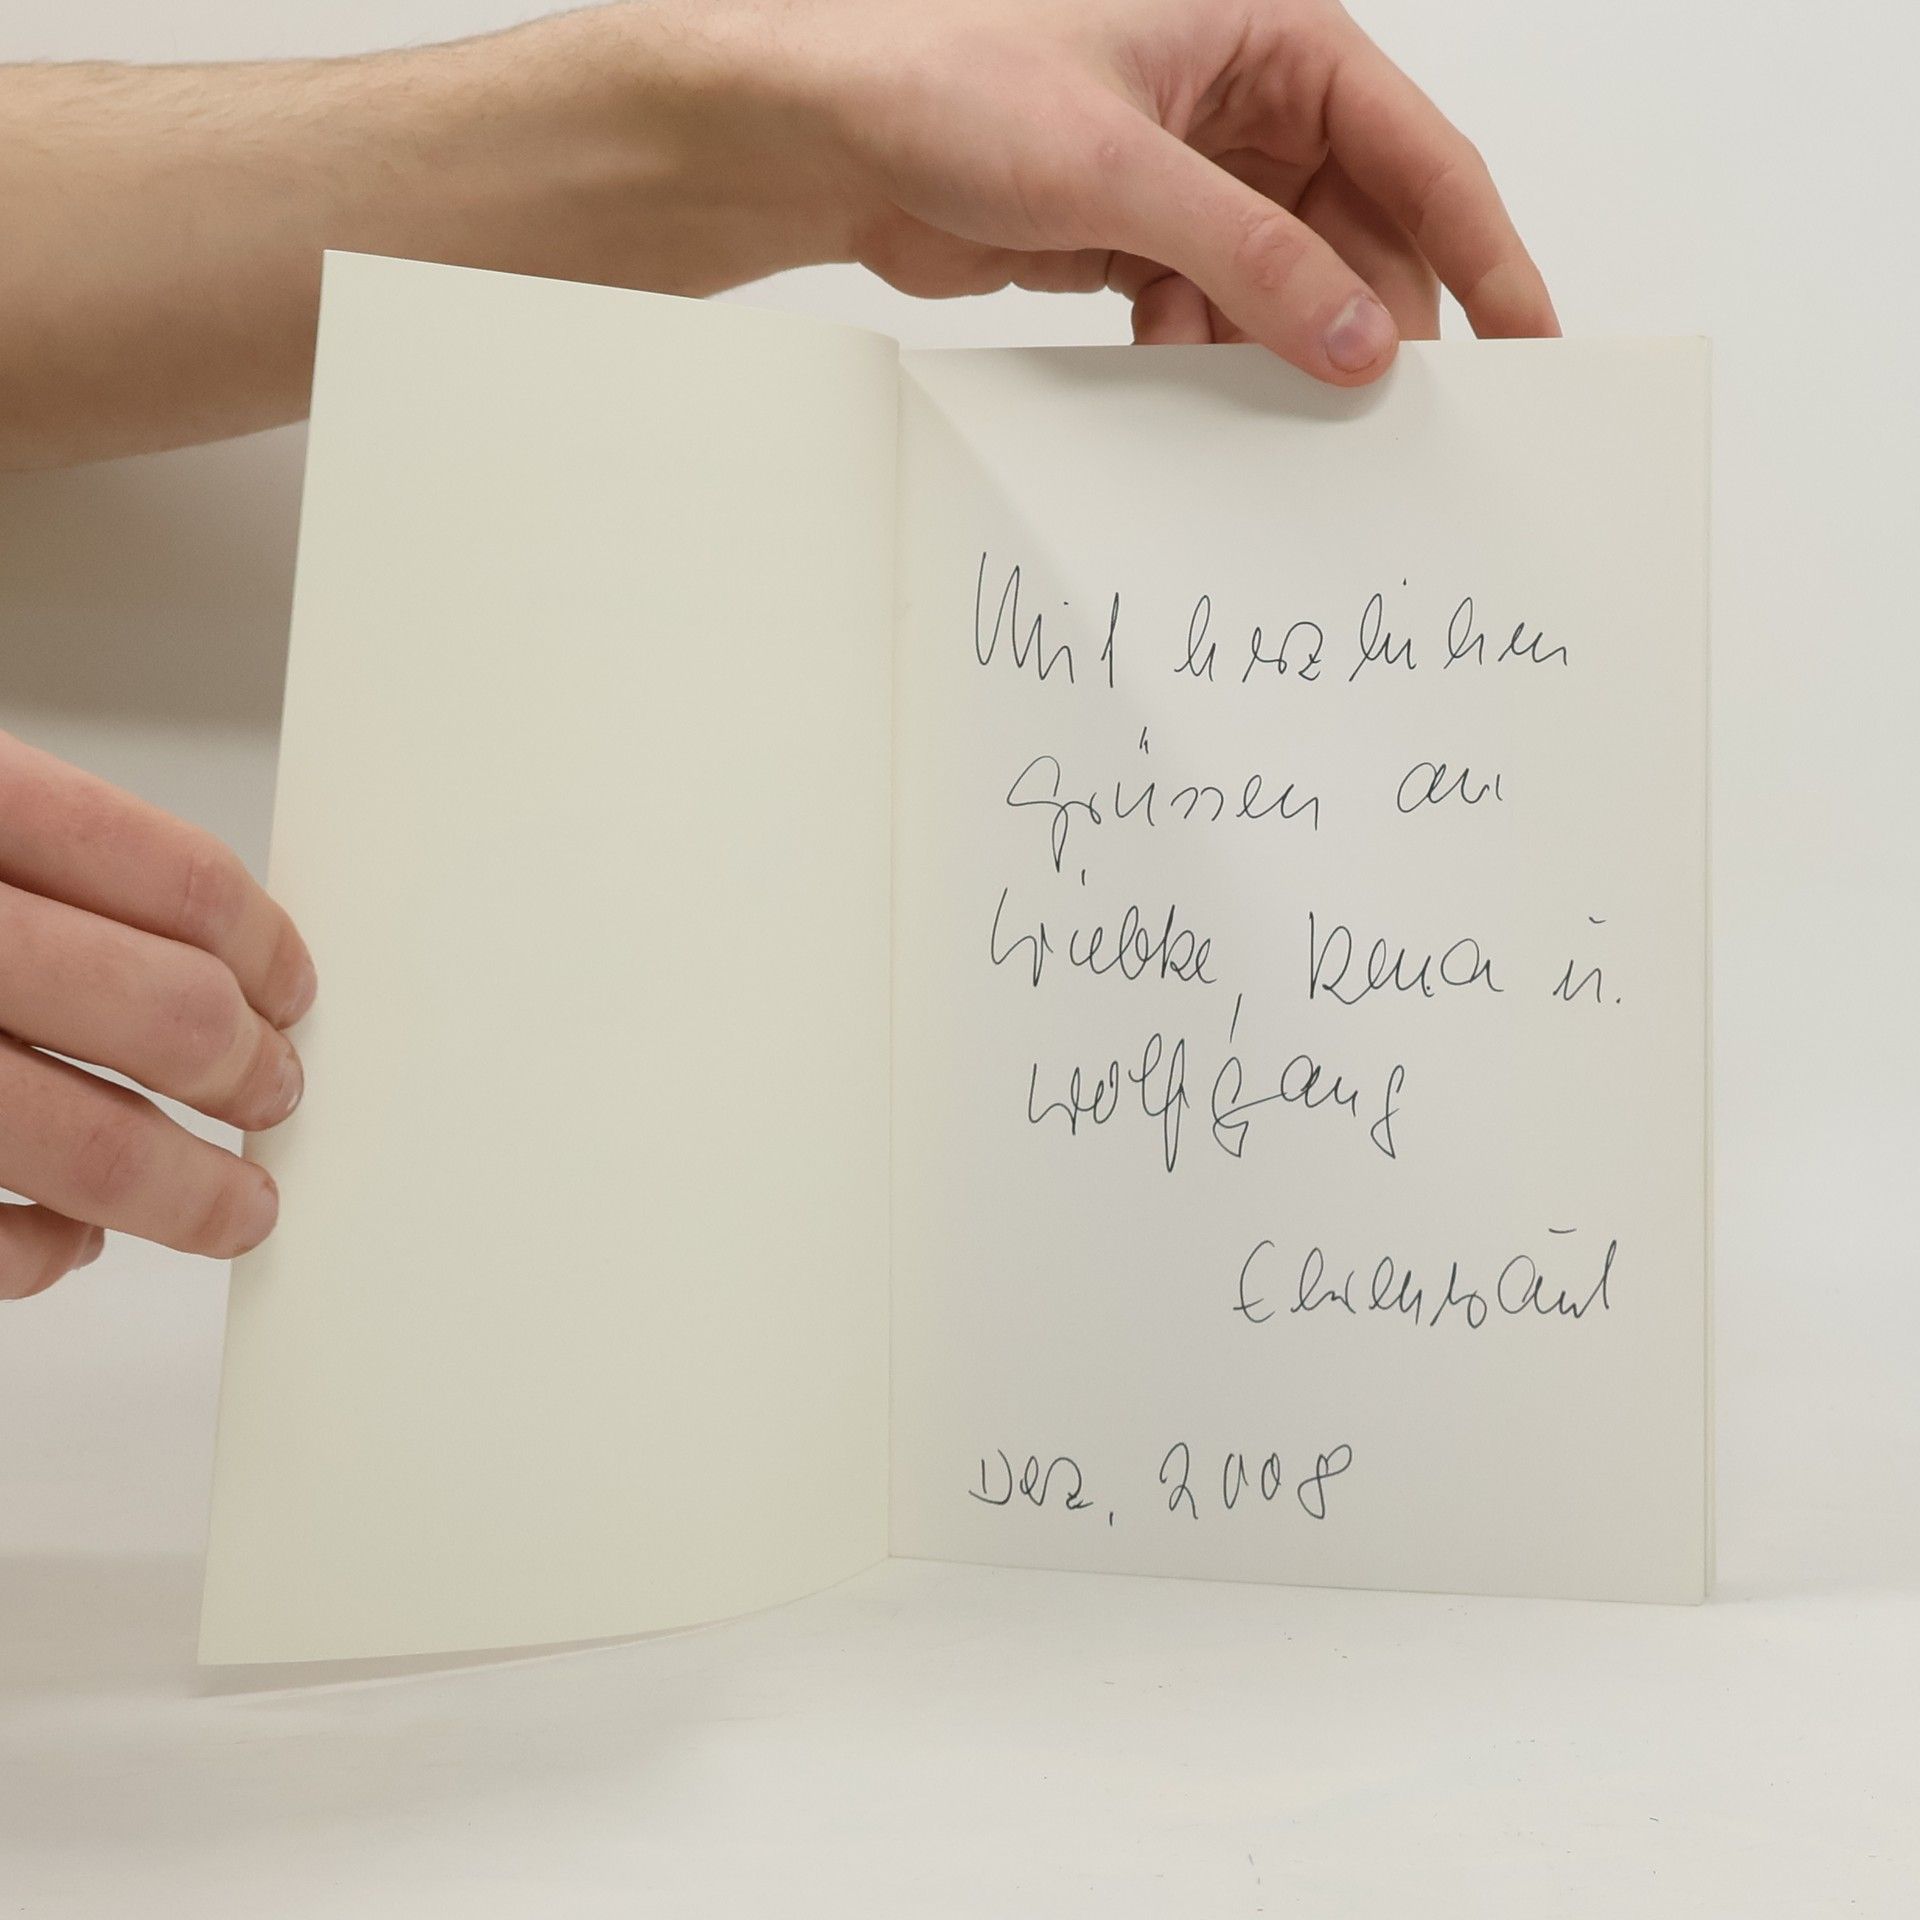 Mit herzlichen
Grüssen an
Wiebke, Rena u.
Wolfgang
Ehrentraut
Dez. 2008